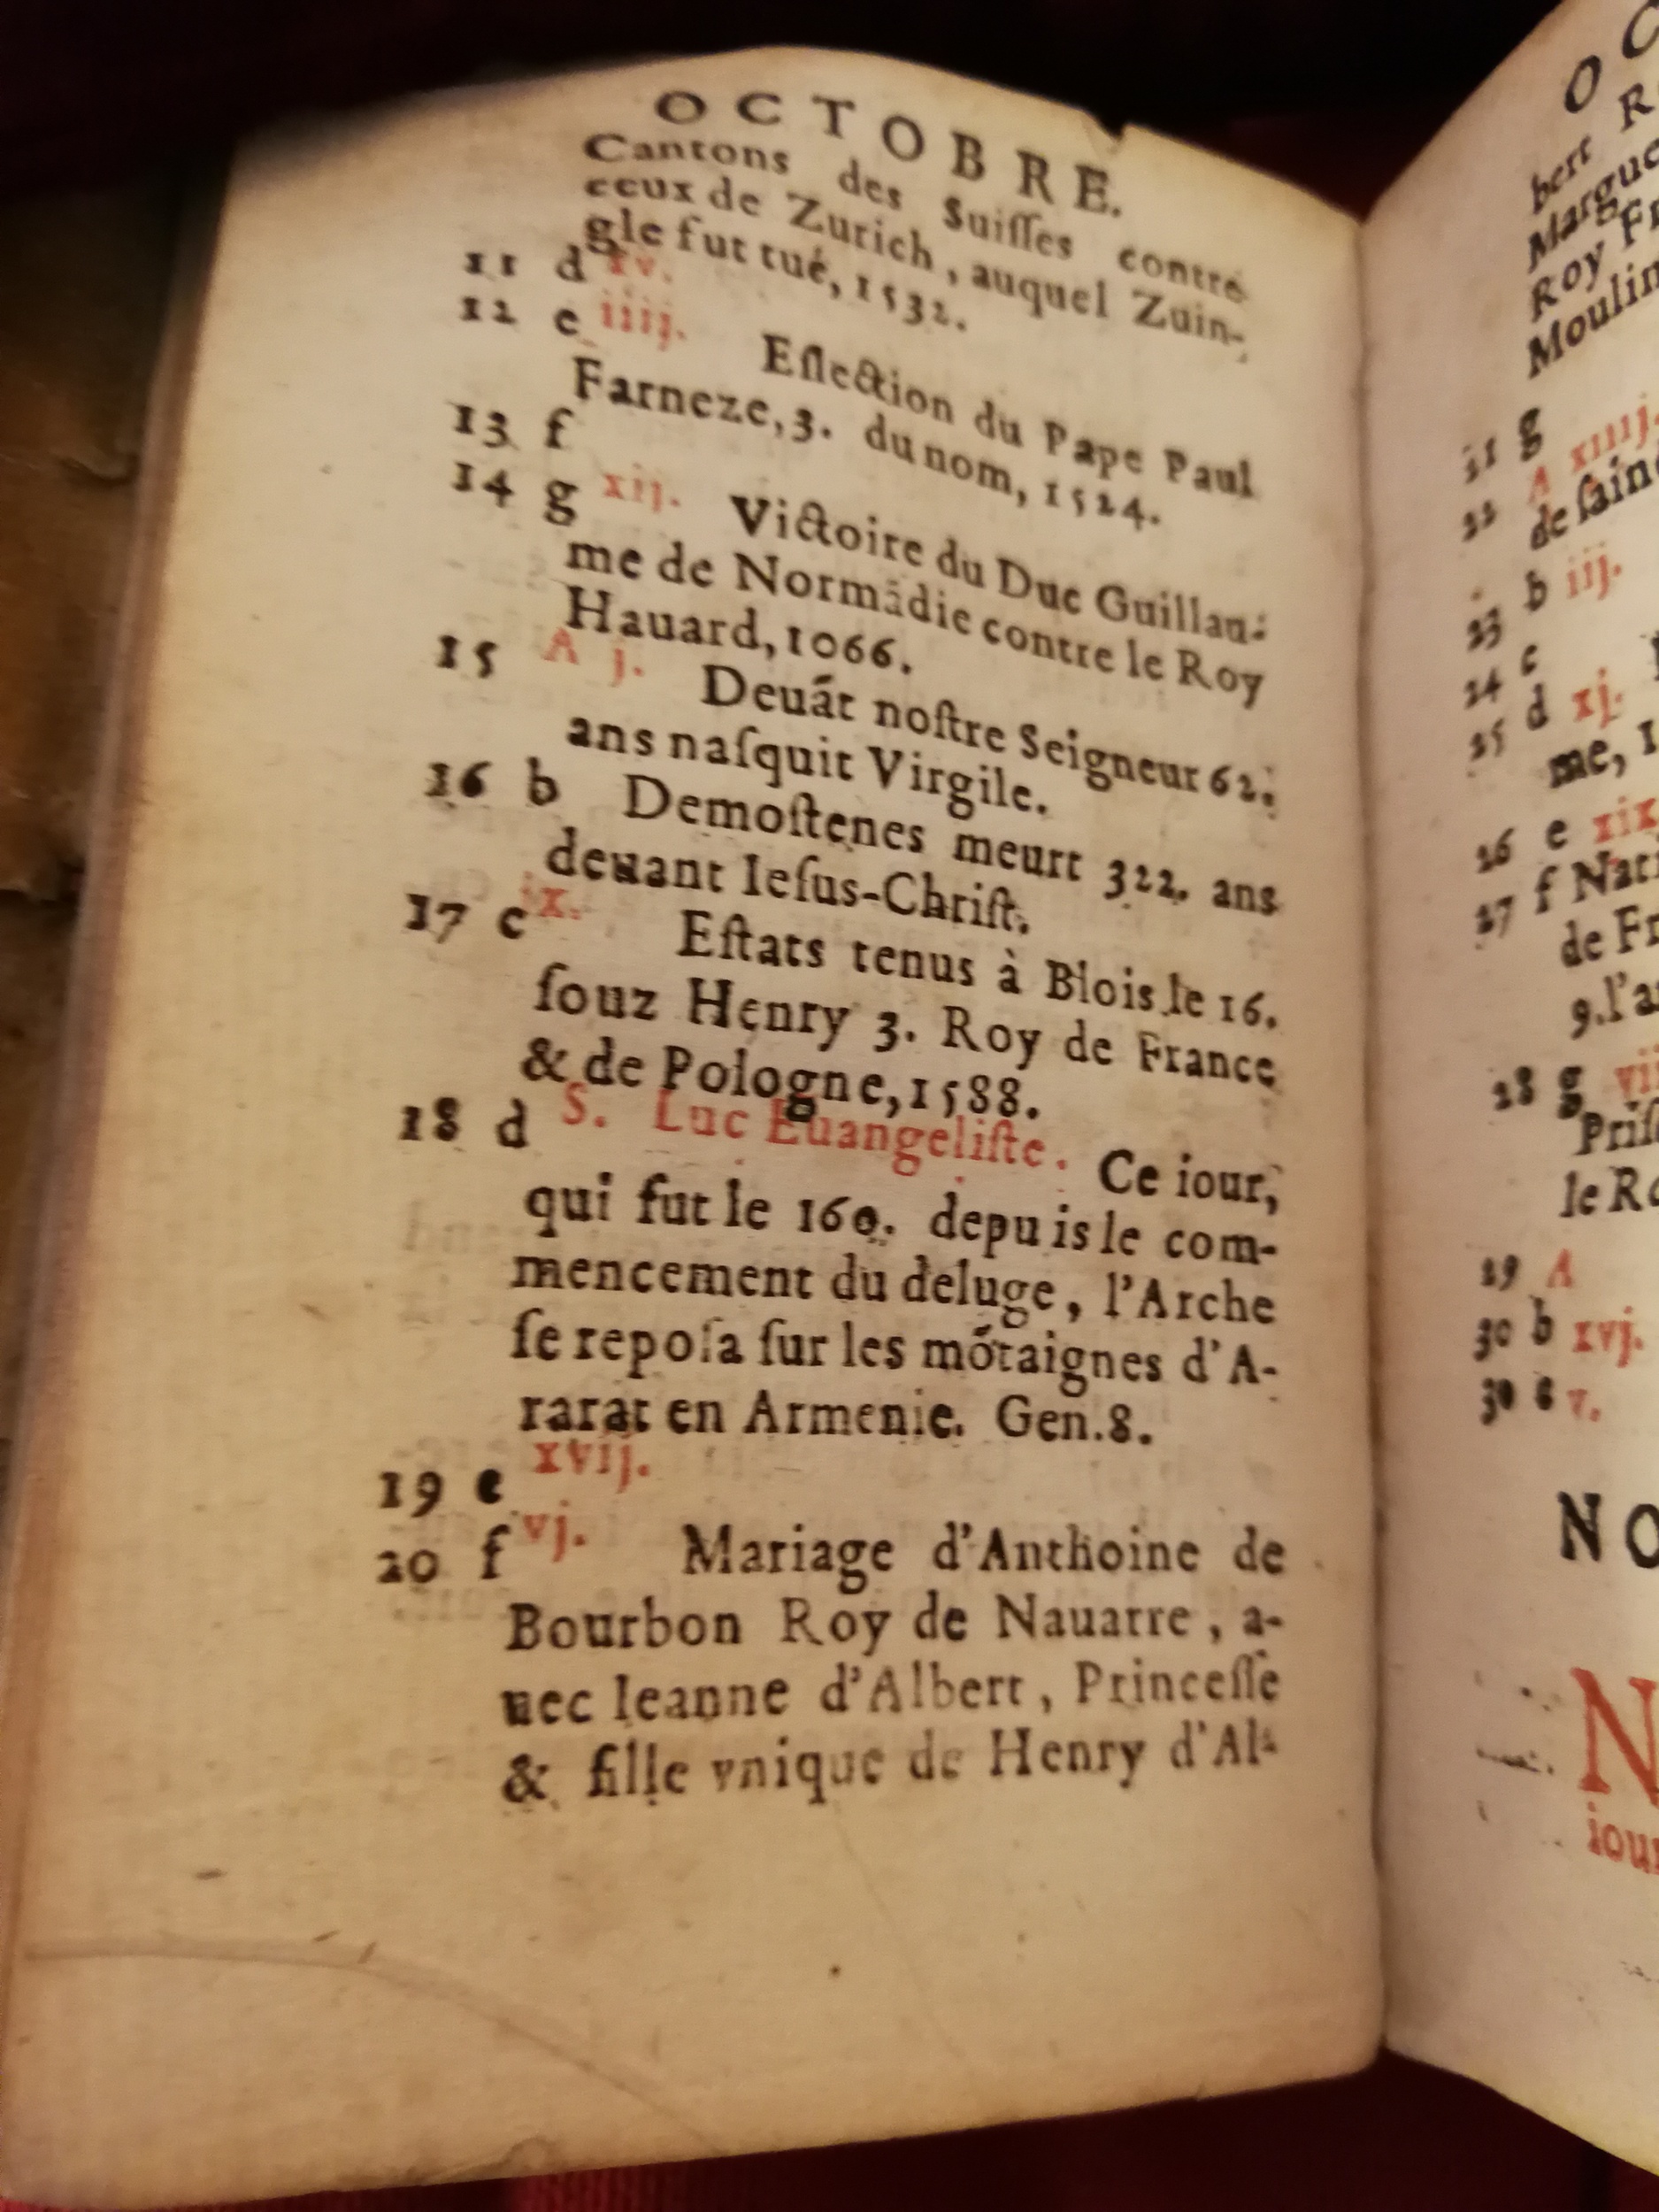 OCTOBRE.
Cantons des Suiſſes contre
ceux de Zurich, auquel Zuin-
gle fut tué, 1532.
11 d xv.
12 e iiij. Eſlection du Pape Paul
Farneze, 3. du nom, 1524.
13 f
14 g xij. Victoire du Duc Guillau-
me de Normãdie contre le Roy
Hauard, 1066.
15 A j. Deuãt noſtre Seigneur 62.
ans naſquit Virgile.
16 b Demoſtenes meurt 322. ans
deuant Ieſus-Chriſt.
17 c ix. Eſtats tenus à Blois le 16.
ſouz Henry 3. Roy de France
& de Pologne, 1588.
18 d S. Luc Euangeliſte. Ce iour,
qui fut le 160. depuis le com-
mencement du deluge, l'Arche
ſe repoſa ſur les mõtaignes d'A-
rarat en Armenie. Gen. 8.
19 e xvij.
20 f vj. Mariage d'Anthoine de
Bourbon Roy de Nauarre, a-
uec Ieanne d'Albert, Princeſſe
& fille vnique de Henry d'Al-
O
bert
Roy
Moulin
21 g
22 A xiiij.
de
23 b iij.
24 c
25 d xj.
me,
26 e xix
27 f
de
9. l'
28 g
le
29 A
30 b xvj.
30 c v.
NO
N